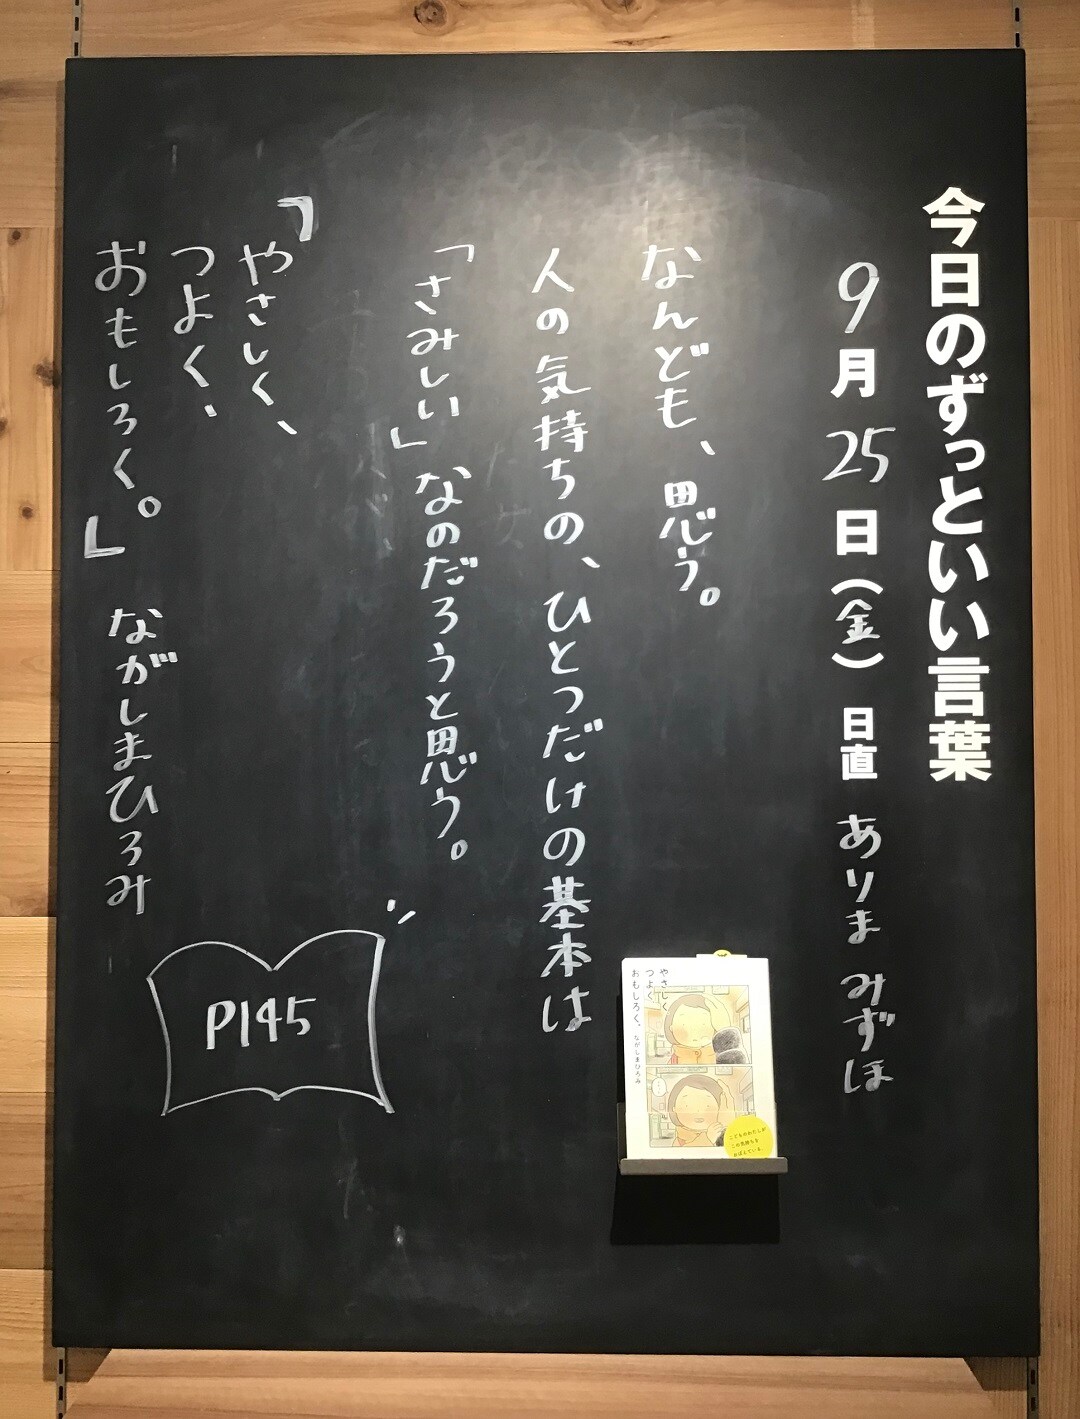 今日のずっといい言葉
9月25日（金） 日直 ありま みずほ
なんども、思う。
人の気持ちの、ひとつだけの基本は
「さみしい」なのだろうと思う。
『やさしく、
つよく、
おもしろく。』 ながしまひろみ
P145
やさしく
つよく
おもしろく。 ながしまひろみ
こどものわたしが
この気持ちを
おぼえている。